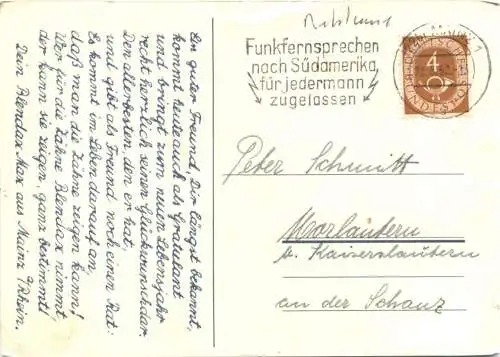 Ein guter Freund, Dir längst bekannt,
kommt heute auch als Gratulant
und bringt zum neuen Lebensjahr
recht herzlich seinen Glückwunsch dar.
Den allerbesten, den er hat,
und gibt als Freund noch einen Rat:
Es kommt im Leben darauf an,
daß man die Zähne zeigen kann!
Wer für die Zähne Blendax nimmt,
der kann sie zeigen, ganz bestimmt!
Dein Blendax Max aus Mainz /Rhein.
Funkfernsprechen
nach Südamerika
für jedermann
zugelassen
4
DEUTSCHE
BUNDESPOST
Peter Schmitt
Morlautern
b. Kaiserslautern
an der Schanz